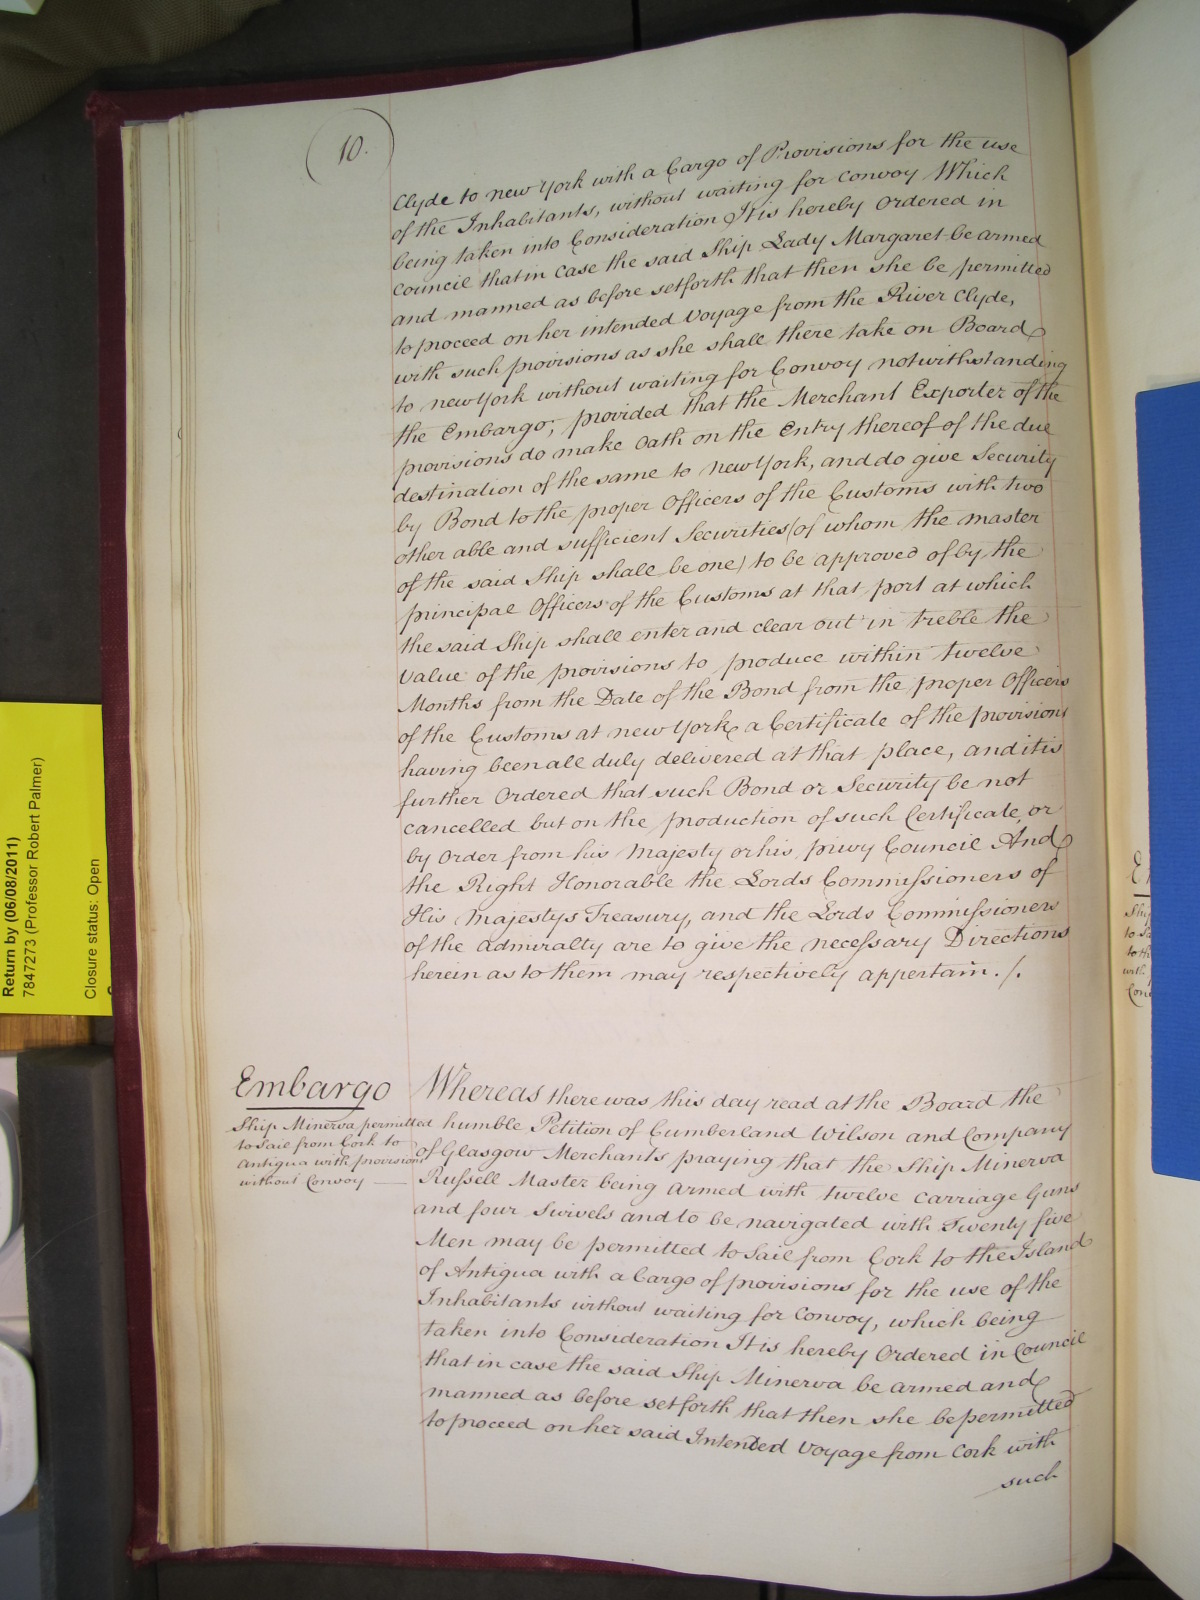 10.
Clyde to new York with a Cargo of Provisions for the use
of the Inhabitants, without waiting for Convoy Which
being taken into Consideration It is hereby Ordered in
Council that in case the said Ship Lady Margaret be armed
and manned as before setforth that then she be permitted
to proceed on her intended Voyage from the River Clyde,
with such provisions as she shall there take on Board
to new York without waiting for Convoy notwithstanding
the Embargo; provided that the Merchant Exporter of the
provisions do make Oath on the Entry thereof of the due
destination of the same to new York, and do give Security
by Bond to the proper Officers of the Customs with two
other able and sufficient Securities (of whom the master
of the said Ship shall be one) to be approved of by the
principal Officers of the Customs at that port at which
the said Ship shall enter and clear out in treble the
Value of the provisions to produce within twelve
Months from the Date of the Bond from the proper Officers
of the Customs at new York a Certificate of the provisions
having been all duly delivered at that place, and it is
further Ordered that such Bond or Security be not
cancelled but on the production of such Certificate, or
by Order from his Majesty or his privy Council And
the Right Honorable the Lords Commissioners of
His Majestys Treasury, and the Lords Commissioners
of the admiralty are to give the necessary Directions
herein as to them may respectively appertain. /.
Embargo
Ship Minerva permitted
to Sail from Cork to
Antigua with provisions
without Convoy
Whereas there was this day read at the Board the
humble Petition of Cumberland Wilson and Company
of Glasgow Merchants praying that the Ship Minerva
Russell Master being armed with twelve Carriage Guns
and four Swivels and to be navigated with Twenty five
Men may be permitted to Sail from Cork to the Island
of Antigua with a Cargo of provisions for the use of the
Inhabitants without waiting for Convoy, which being
taken into Consideration It is hereby Ordered in Council
that in case the said Ship Minerva be armed and
manned as before setforth that then she be permitted
to proceed on her said Intended Voyage from Cork with
such
Return by (06/08/2011)
7847273 (Professor Robert Palmer)
Closure status: Open